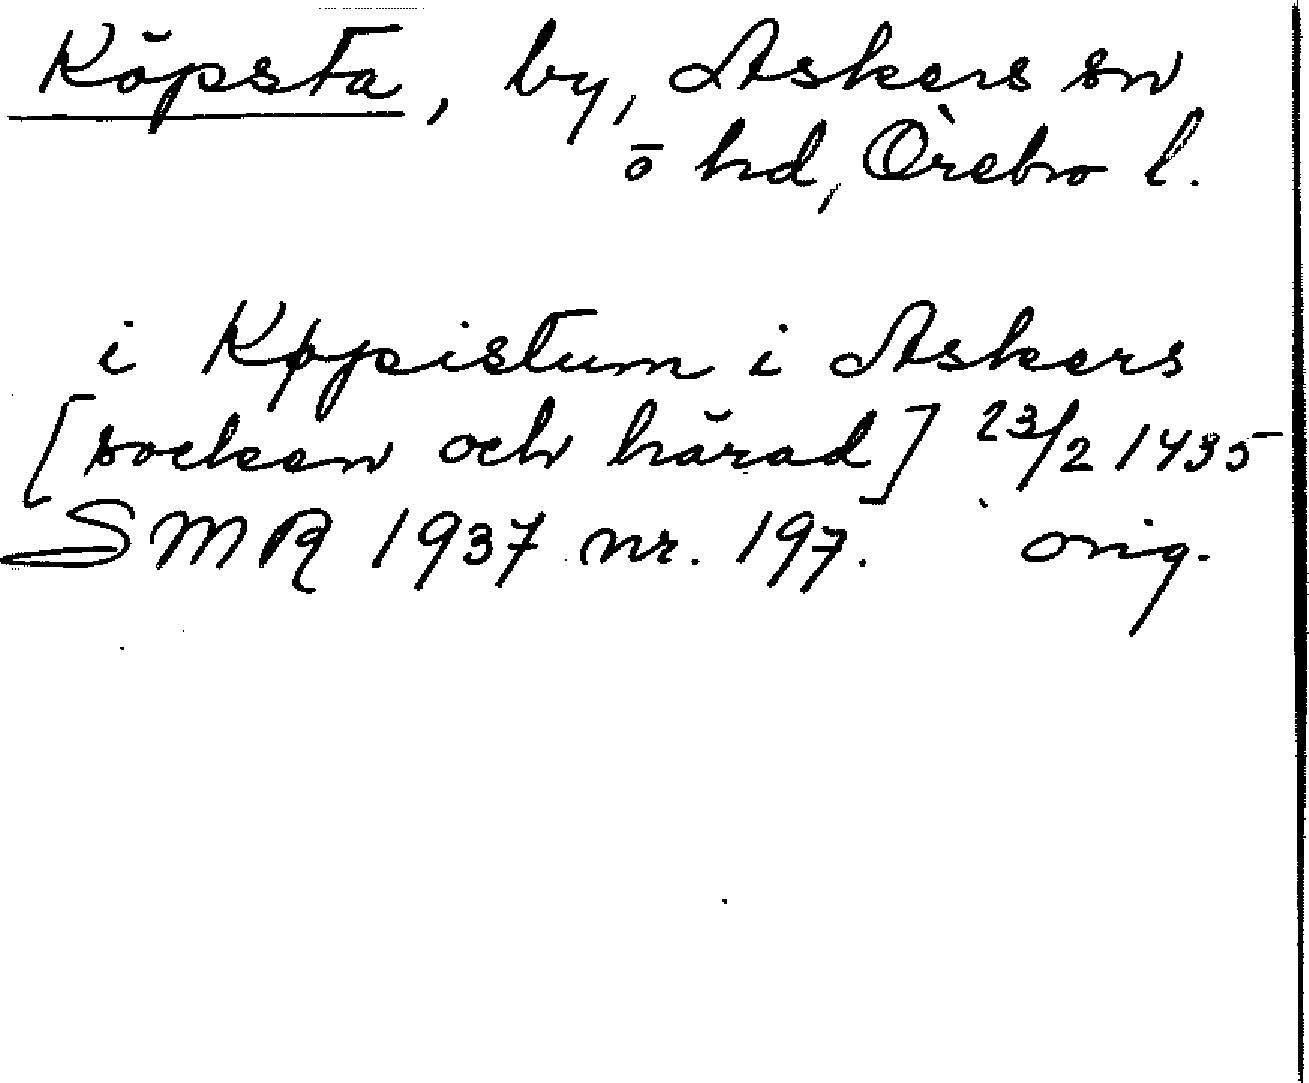 Köpsta, by, Askers sn
o hd, Örebro l.
i Køpistum i Askers
[socken och härad] 23/2 1435
SMR 1937 nr. 197. orig.